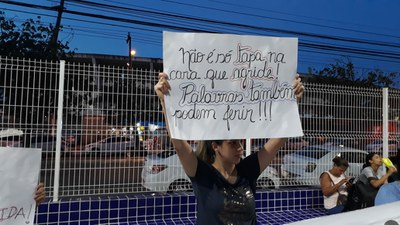 Não é só tapa na
cara que agride!
Palavras também
podem ferir!!!
IDA!